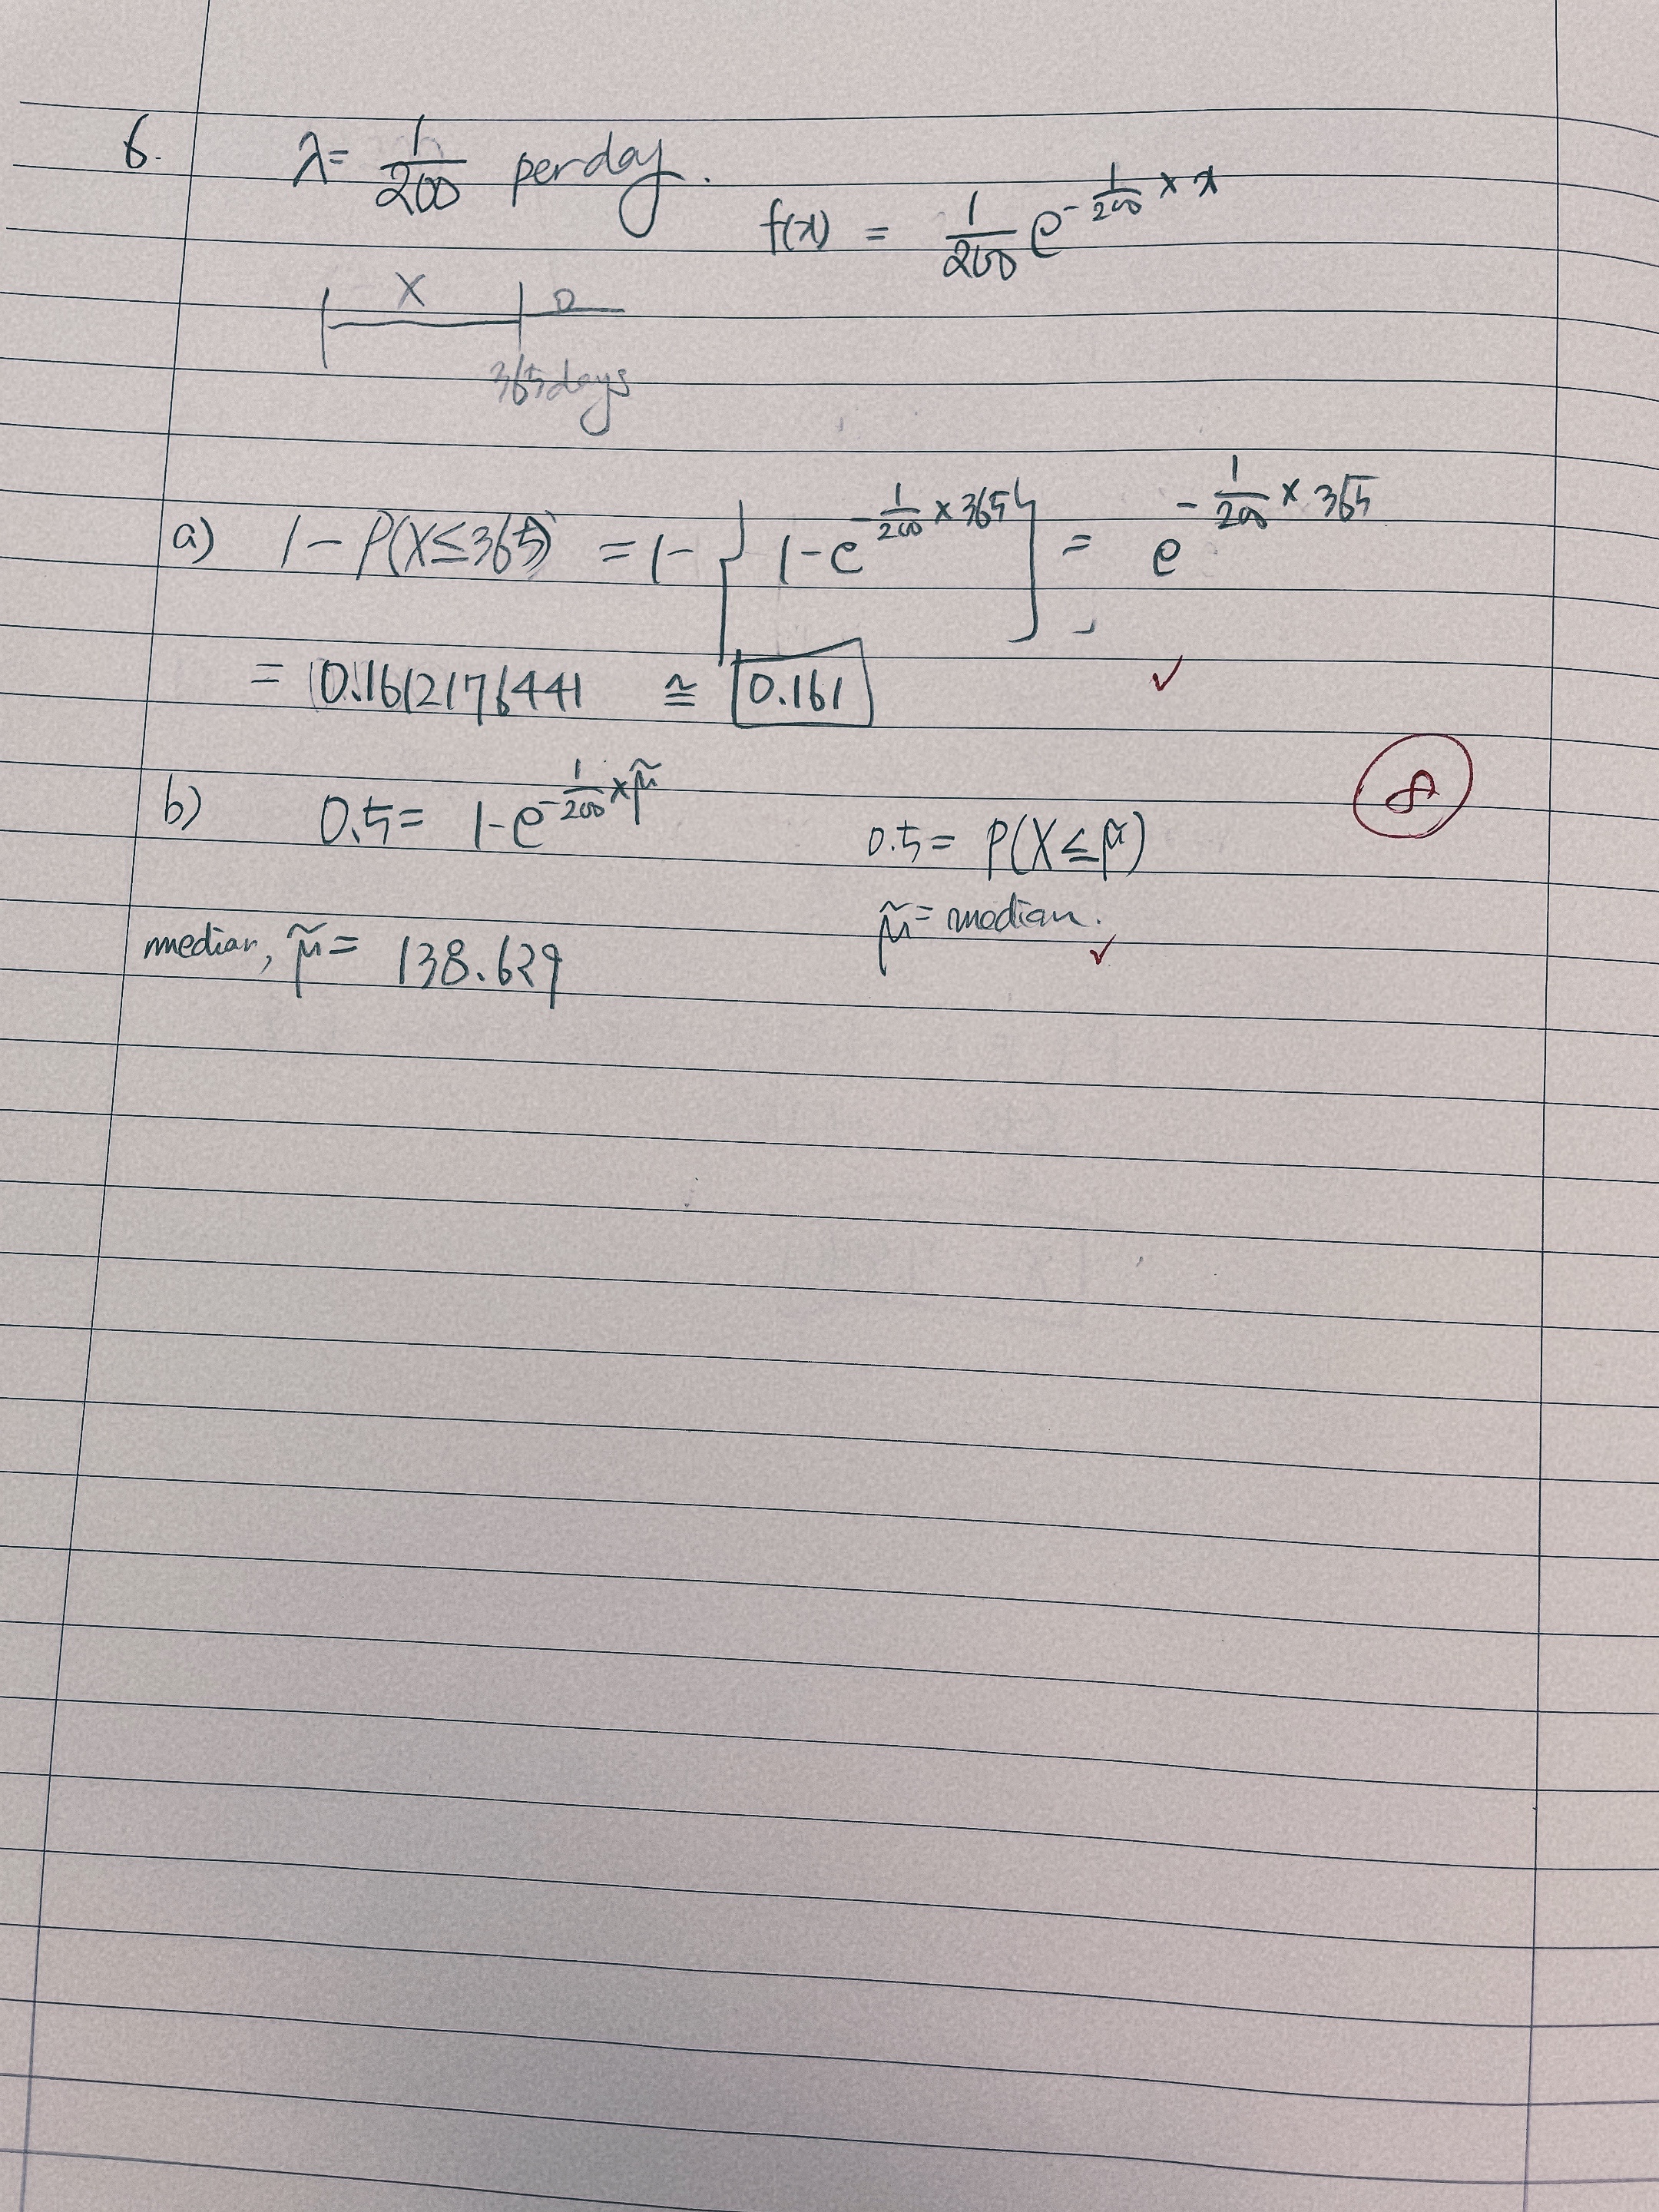 6. λ= 1/200 per day.
f(x) = 1/200 e^{-1/200 × x}
X O
365 days
a) 1 - P(X≤365) = 1 - [1-e^{-1/200 × 365}] = e^{-1/200 × 365}
= 0.1612176441 ≅ 0.161 ✓
b) 0.5 = 1-e^{-1/200 × μ̃}
8
0.5 = P(X≤μ̃)
μ̃ = median. ✓
median, μ̃ = 138.629